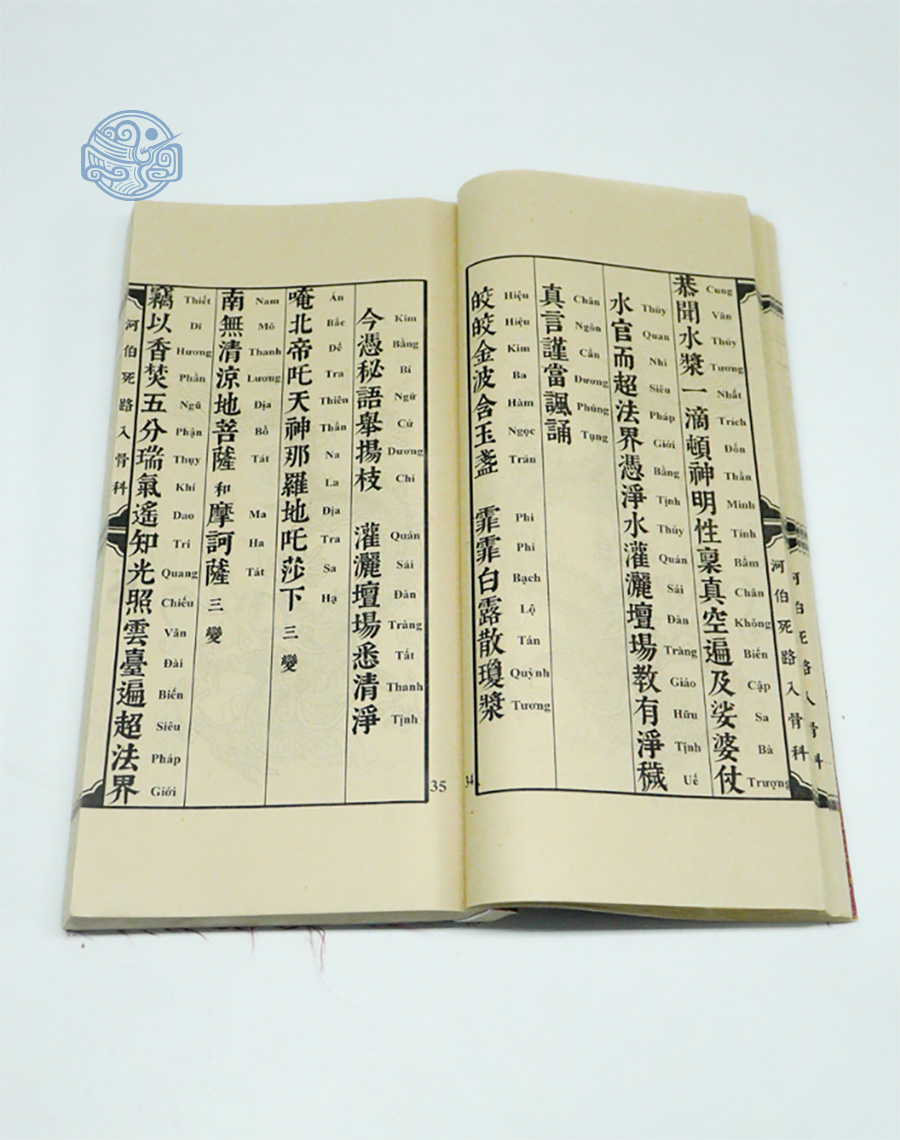 河伯死路入骨科
河伯死路入骨科
恭聞水漿一滴頓神明性稟真空遍及娑婆仗
Cung Văn Thủy Tương Nhất Trích Đốn Thần Minh Tính Bẩm Chân Không Biến Cập Sa Bà Trượng
水官而超法界憑淨水灌灑壇場教有淨穢
Thủy Quan Nhi Siêu Pháp Giới Bằng Tịnh Thủy Quán Sái Đàn Tràng Giáo Hữu Tịnh Uế
真言謹當諷誦
Chân Ngôn Cẩn Dương Phúng Tụng
皎皎金波含玉盞 霏霏白露散瓊漿
Hiệu Hiệu Kim Ba Hàm Ngọc Trản Phi Phi Bạch Lộ Tán Quỳnh Tương
34
今憑秘語舉揚枝 灌灑壇場悉清淨
Kim Bằng Bí Ngữ Cử Dương Chi Quán Sái Đàn Tràng Tất Thanh Tịnh
唵北帝吒天神那羅地吒莎下 三變
Án Bắc Đế Tra Thiên Thần Na La Địa Tra Sa Hạ
南無清涼地菩薩 和 摩訶薩 三變
Nam Mô Thanh Lương Địa Bồ Tát Ma Ha Tát
竊以香焚五分瑞氣遙知光照雲臺遍超法界
Thiết Dĩ Hương Phần Ngũ Phận Thụy Khí Dao Tri Quang Chiếu Vân Đài Biến Siêu Pháp Giới
河伯死路入骨科
35